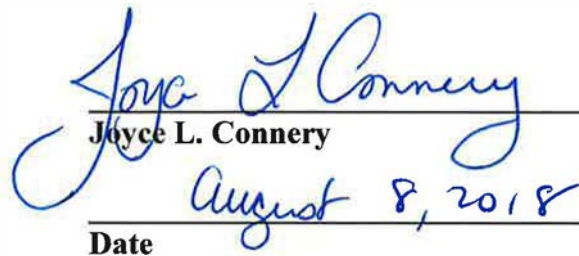 Joyce L Connery
Joyce L. Connery
August 8, 2018
Date